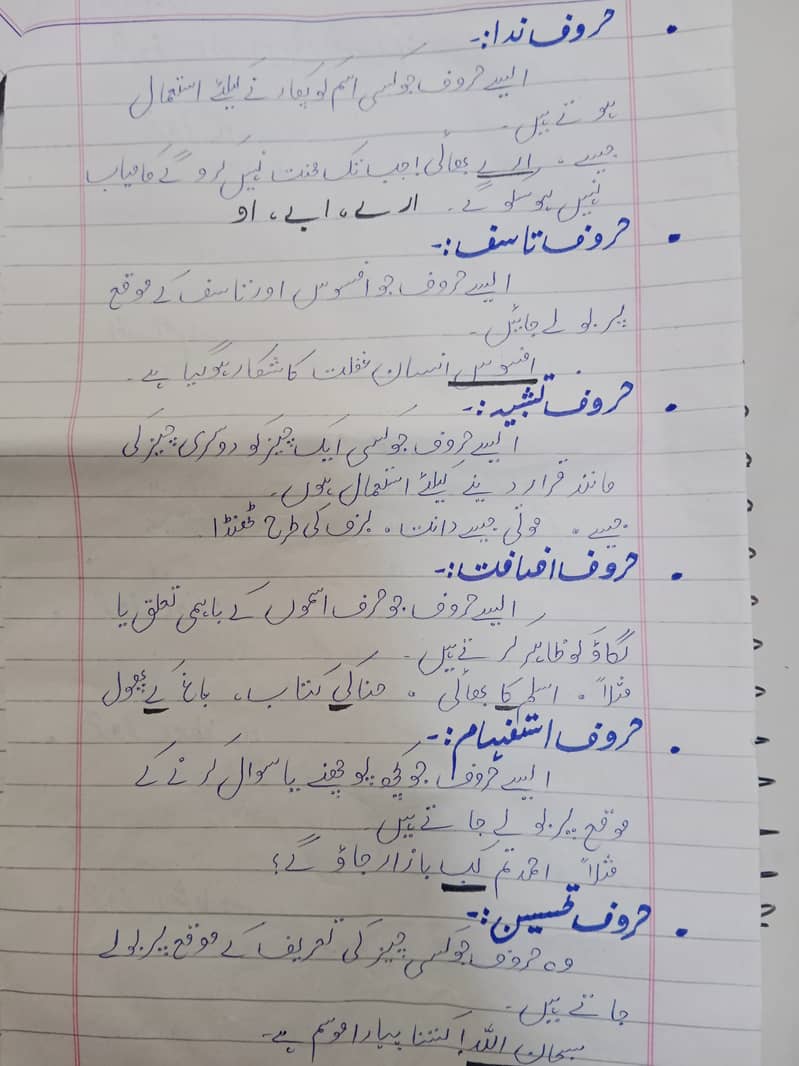 • حروف ندا:-
ایسے حروف جو کسی اسم کو پکارنے کیلئے استعمال
ہوتے ہیں۔
جیسے۔ ارے بھائی! جب تک محنت نہیں کرو گے کامیاب
نہیں ہو سکو گے۔ ارے، ابے، او
• حروف تاسف:-
ایسے حروف جو افسوس اور تاسف کے موقع
پر بولے جائیں۔
افسوس انسان غفلت کا شکار ہو گیا ہے۔
• حروف تشبیہ:-
ایسے حروف جو کسی ایک چیز کو دوسری چیز کی
مانند قرار دینے کیلئے استعمال ہوں۔
جیسے۔ موتی جیسے دانت۔ برف کی طرح ٹھنڈا
• حروف اضافت:-
ایسے حروف جو حرف اسموں کے باہمی تعلق یا
لگاؤ کو ظاہر کرتے ہیں۔
مثلاً۔ اسلم کا بھائی۔ حنا کی کتاب، باغ کے پھول
• حروف استفہام:-
ایسے حروف جو کچھ پوچھنے یا سوال کرنے کے
موقع پر بولے جاتے ہیں
مثلاً احمد تم کب بازار جاؤ گے؟
• حروف تحسین:-
وہ حروف جو کسی چیز کی تعریف کے موقع پر بولے
جاتے ہیں۔
سبحان اللہ! کتنا پیارا موسم ہے۔